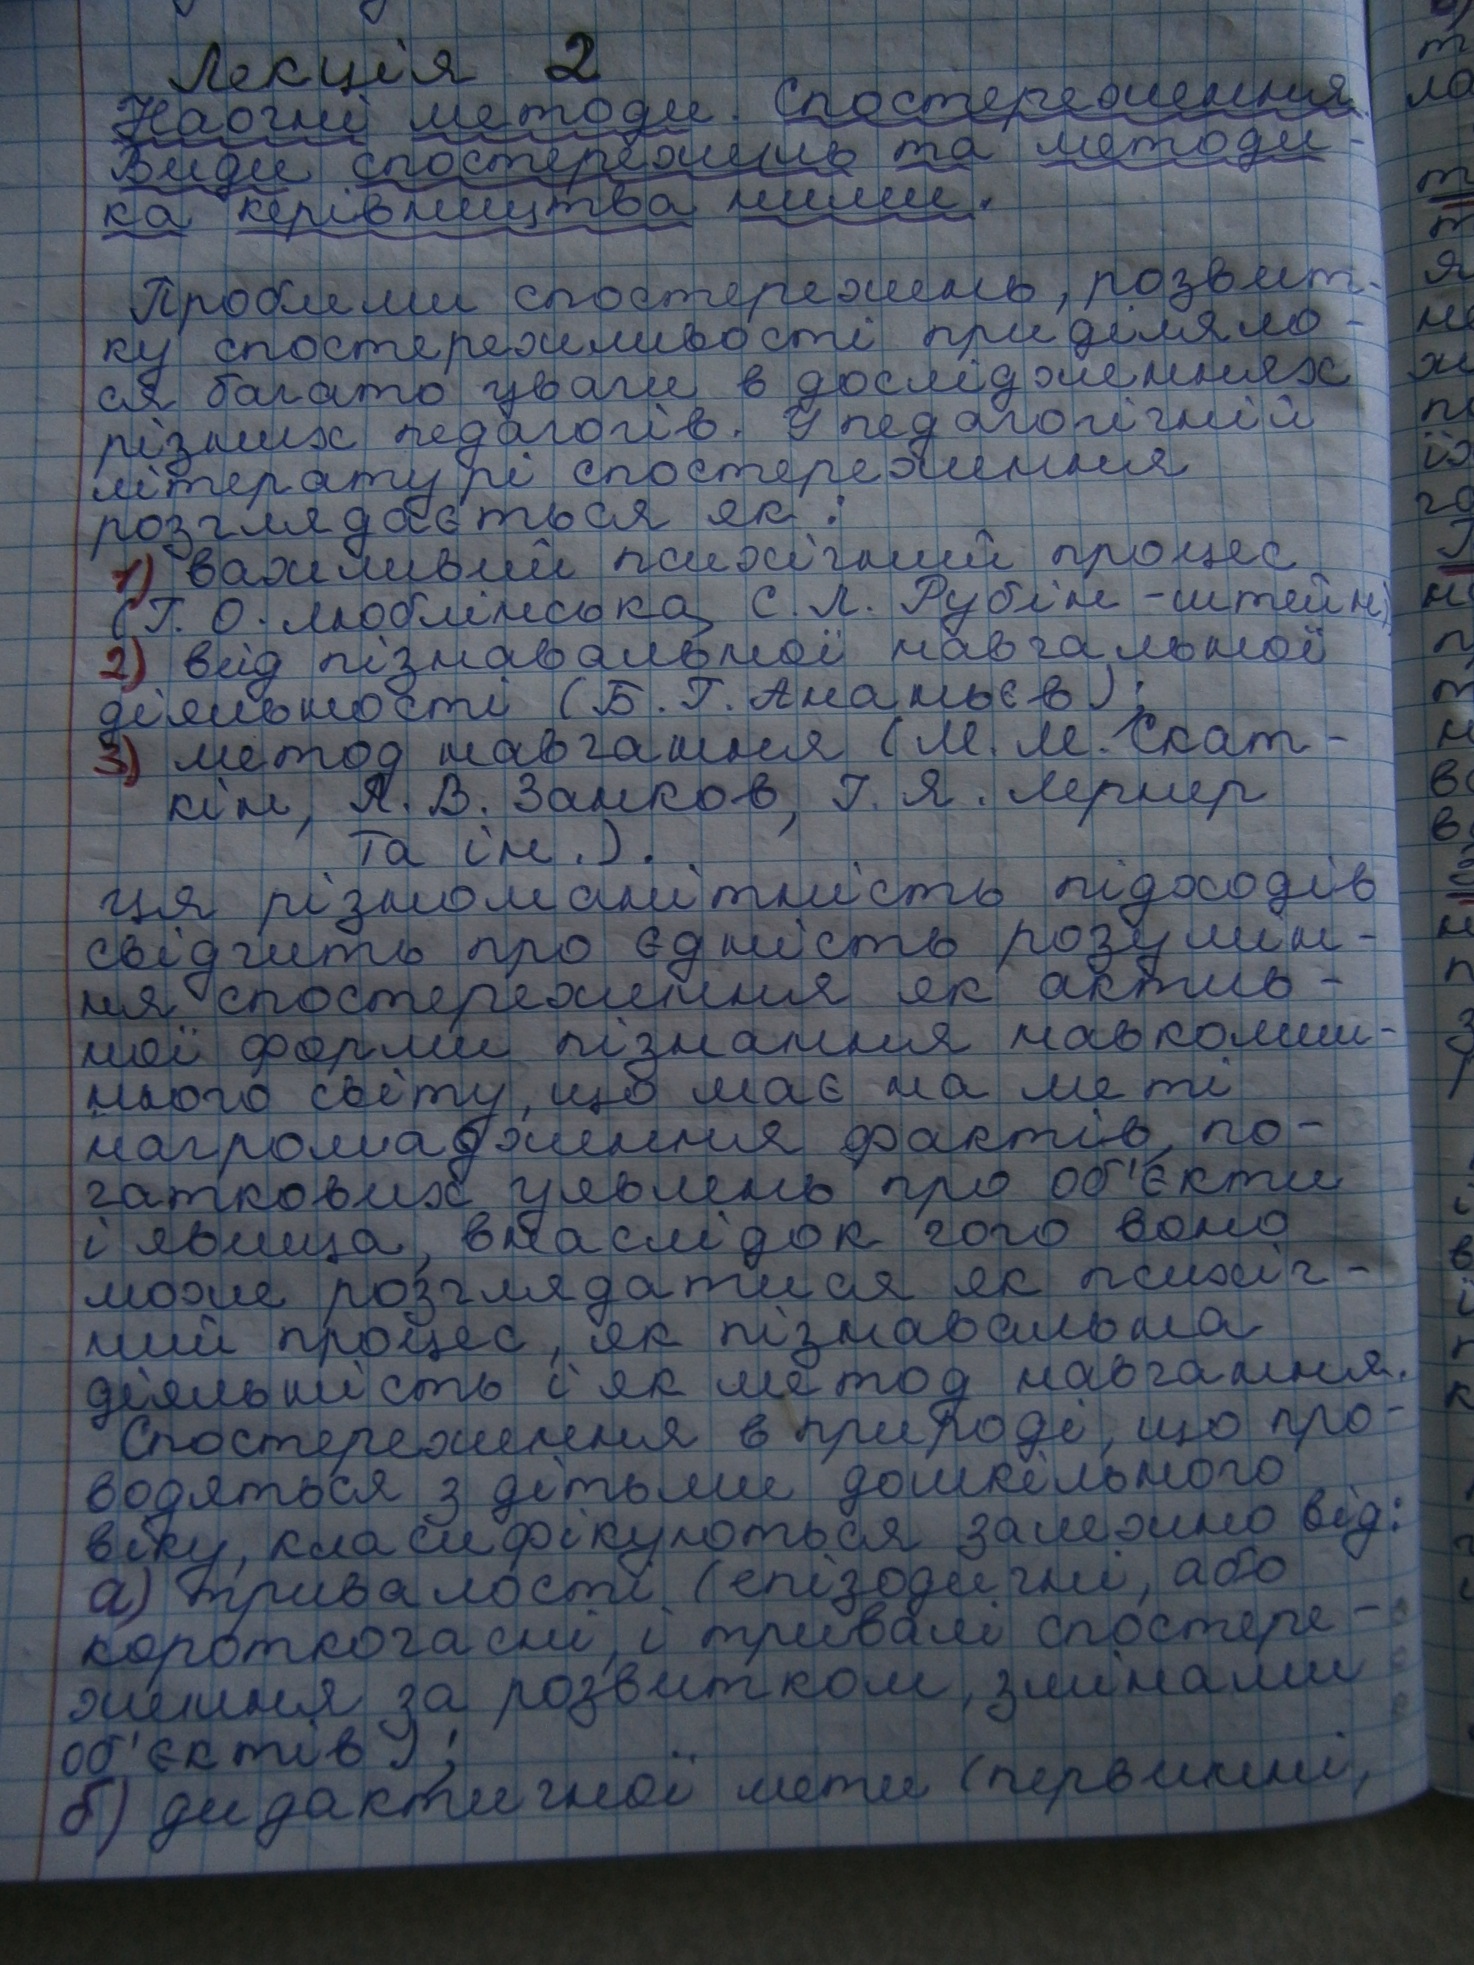 Лекція 2
Наочні методи. Спостереження.
Види спостережень та методи-
ка керівництва ними.
Проблеми спостережень, розвит-
ку спостережливості приділяло-
ся багато уваги в дослідженнях
різних педагогів. У педагогічній
літературі спостереження
розглядається як:
1) важливий психічний процес
(Г. О. Люблінська, С. Л. Рубін-штейн)
2) вид пізнавальної навчальної
діяльності (Б. Г. Ананьєв);
3) метод навчання (М. М. Скат-
кін, Л. В. Занков, І. Я. Лернер
та ін.).
Ця різноманітність підходів
свідчить про єдність розумін-
ня спостереження як актив-
ної форми пізнання навколиш-
нього світу, що має на меті
нагромадження фактів, по-
чаткових уявлень про об'єкти
і явища, внаслідок чого воно
може розглядатися як психіч-
ний процес, як пізнавальна
діяльність і як метод навчання.
Спостереження в природі, що про-
водяться з дітьми дошкільного
віку, класифікуються залежно від:
а) тривалості (епізодичні, або
короткочасні, і тривалі спостере-
ження за розвитком, змінами
об'єктів);
б) дидактичної мети (первинні,